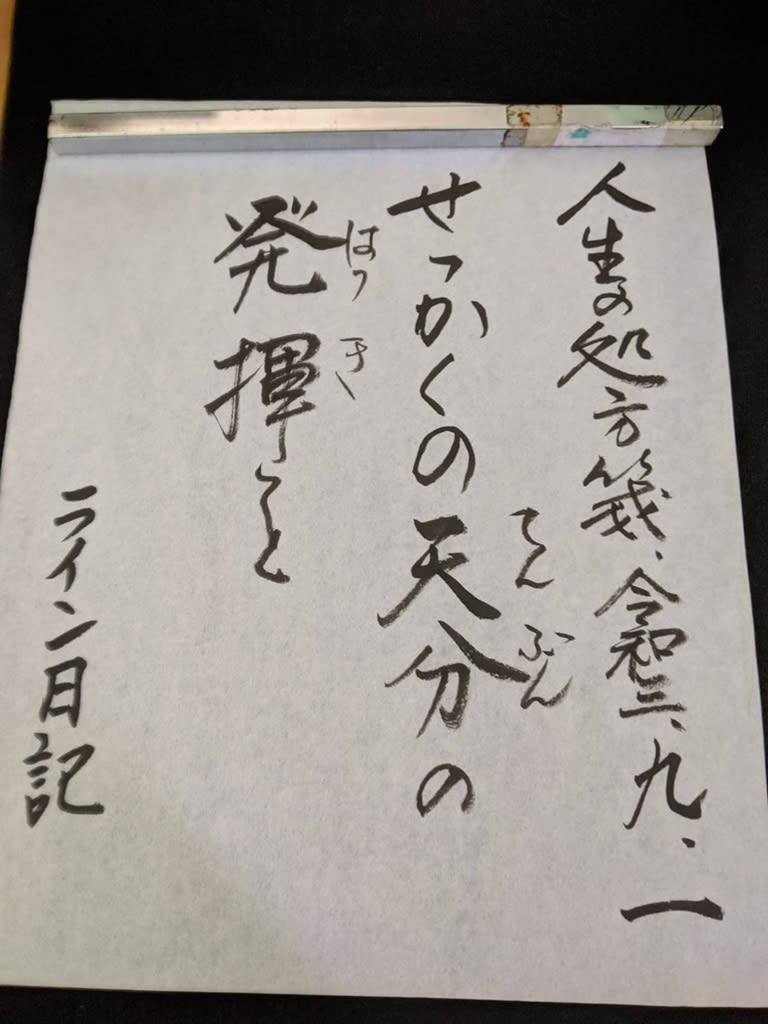 人生の処方箋、令和三、九、一
せっかくの天分の
てんぶん
発揮こと
はっき
ライン日記